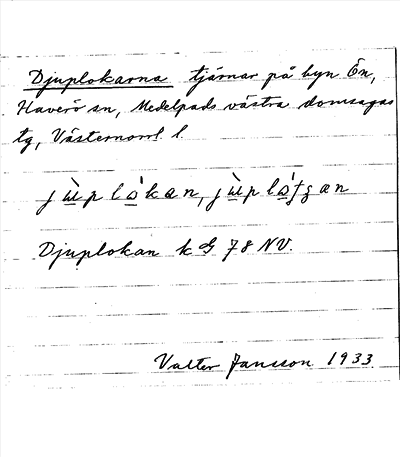 Djuplokarna tjärnar på byn Ön,
Haverö sn, Medelpads västra domsagas
tg, Västernorrl. l.
jùplòkan, jùplòʃgan
Djuplokan k G 78 NV.
Valter Jansson 1933